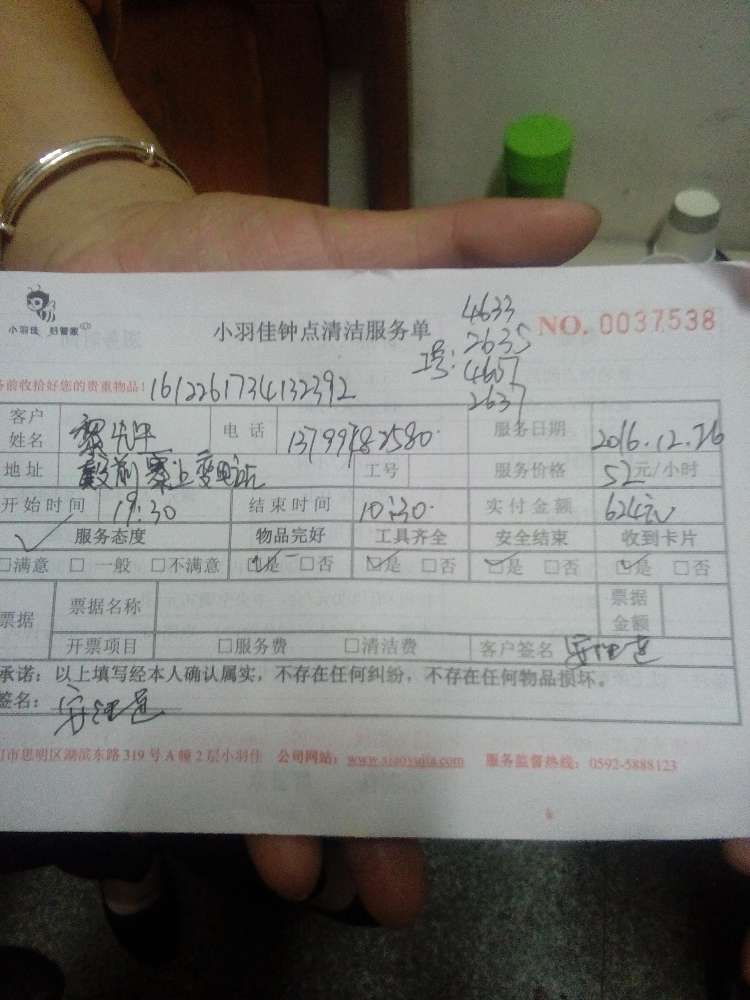 小羽佳 好管家
小羽佳钟点清洁服务单
NO. 0037538
4633
2635
工号: 4607
2637
务前收拾好您的贵重物品! 1612261734132392
客户姓名 先生 电话 服务日期 2016.12.26
地址 殿前寨上变电站 工号 服务价格 52元/小时
开始时间 19:30 结束时间 10:30 实付金额 624元
服务态度 物品完好 工具齐全 安全结束 收到卡片
□满意 □一般 □不满意 □是 □否 □是 □否 □是 □否 □是 □否
票据 票据名称 票据金额
开票项目 □服务费 □清洁费 客户签名
承诺：以上填写经本人确认属实，不存在任何纠纷，不存在任何物品损坏。
签名：
门市思明区湖滨东路 319 号 A 幢 2 层小羽佳 公司网站：www.xiaoyujia.com 服务监督热线：0592-5888123